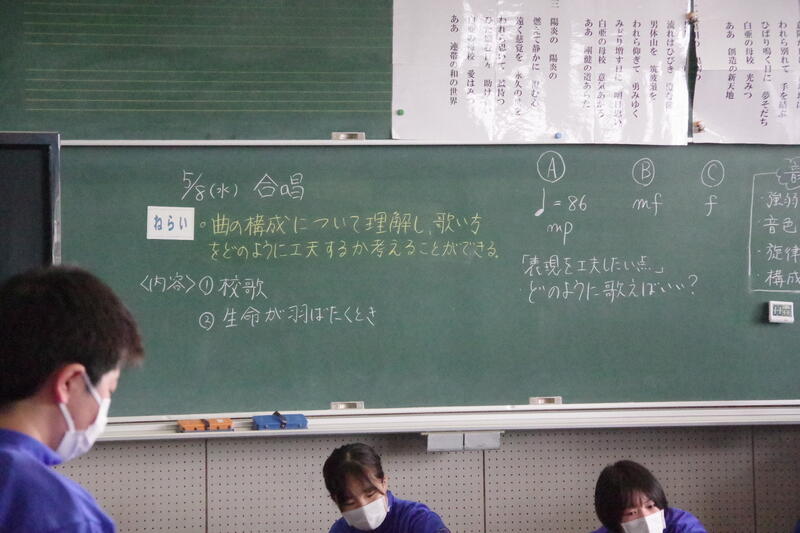 三 陽炎の 陽炎の
燃えて静かに
遠く慈覚を 永久の
われら
白亜の母校 愛はみ
ああ 連帯の和の世界
流れはひびき
男体山を 筑波嶺を
われら仰ぎて 勇みゆく
みどり増す日に 明日思い
白亜の母校 意気あがる
ああ 剛健の道あらた
われら別れて 手を結ぶ
ひばり鳴く日に 夢そだち
白亜の母校 光みつ
ああ 創造の新天地
5/8(水) 合唱
ねらい
・曲の構成について理解し、歌い方
をどのように工夫するか考えることができる。
〈内容〉① 校歌
② 生命が羽ばたくとき
Ⓐ Ⓑ Ⓒ
♩=86 mf f
mp
「表現を工夫したい点」
どのように歌えばいい?
音
・強弱
・音色
・旋律
・構成